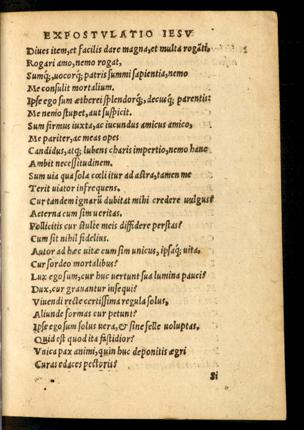 EXPOSTVLATIO IESV
Diues item, et facilis dare magna, et multa rogãti,
Rogari amo, nemo rogat,
Sumq́;, uocorq́; patris summi sapientia, nemo
Me consulit mortalium.
Ipse ego sum ætherei splendorq́;, decusq́; parentis:
Me nemo stupet, aut suspicit.
Sum firmus iuxta, ac iucundus amicus amico,
Me pariter, ac meas opes
Candidus, atq; lubens charis impertio, nemo hanc
Ambit necessitudinem.
Sum uia qua sola cœli itur ad astra, tamen me
Terit uiator infrequens.
Cur tandem ignarũ dubitat mihi credere uulgus?
Aeterna cum sim ueritas.
Pollicitis cur stulte meis diffidere perstas?
Cum sit nihil fidelius.
Autor ad hæc uitæ cum sim unicus, ipsaq́; uita,
Cur sordeo mortalibus?
Lux ego sum, cur huc uertunt sua lumina pauci?
Dux, cur grauantur insequi?
Viuendi recte certissima regula solus,
Aliunde formas cur petunt?
Ipse ego solus uera, & sine felle uoluptas,
Quid est quod ita fastidior?
Vnica pax animi, quin huc deponitis ægri
Curas edaces pectoris?
Si